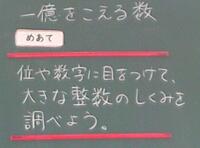 一億をこえる数
めあて
位や数字に目をつけて、
大きな整数のしくみを
調べよう。